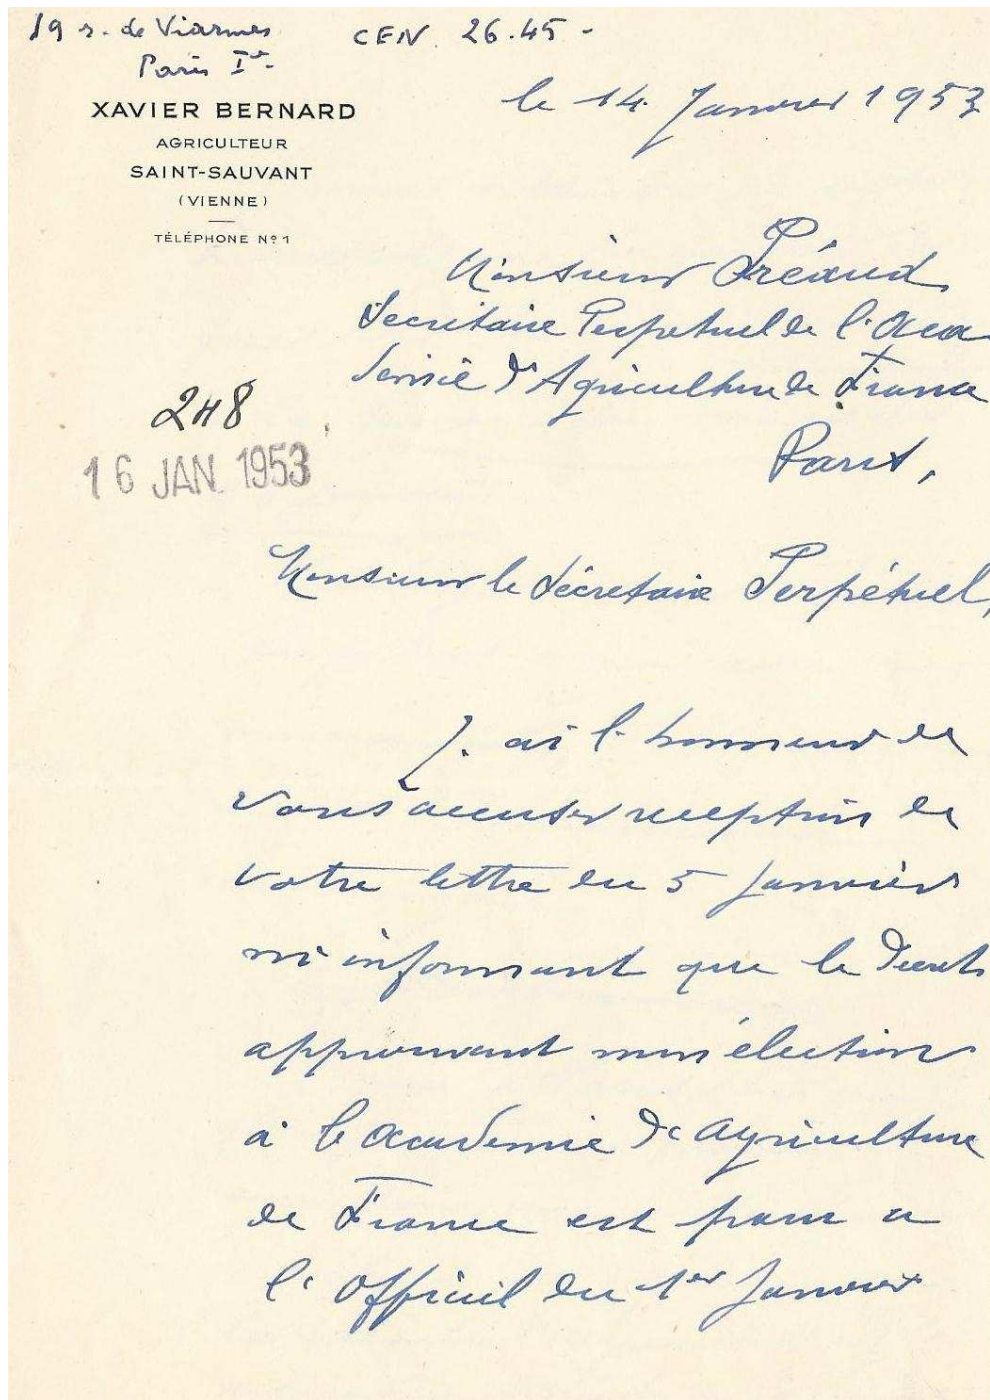 19 r. de Viarmes
Paris Ier
CEN. 26.45 -
XAVIER BERNARD
AGRICULTEUR
SAINT-SAUVANT
(VIENNE)
TÉLÉPHONE Nº 1
le 14 Janvier 1953
Monsieur Préaud,
Secretaire Perpetuel de l'Aca
demie d'Agriculture de France
Paris,
248
16 JAN. 1953
Monsieur le Sécretaire Perpétuel,
J'ai l'honneur de
vous accuser reception de
votre lettre du 5 Janvier
m'informant que le Decret
approuvant mon élection
à l'Academie d'Agriculture
de France est paru a
l'Officiel du 1er Janvier